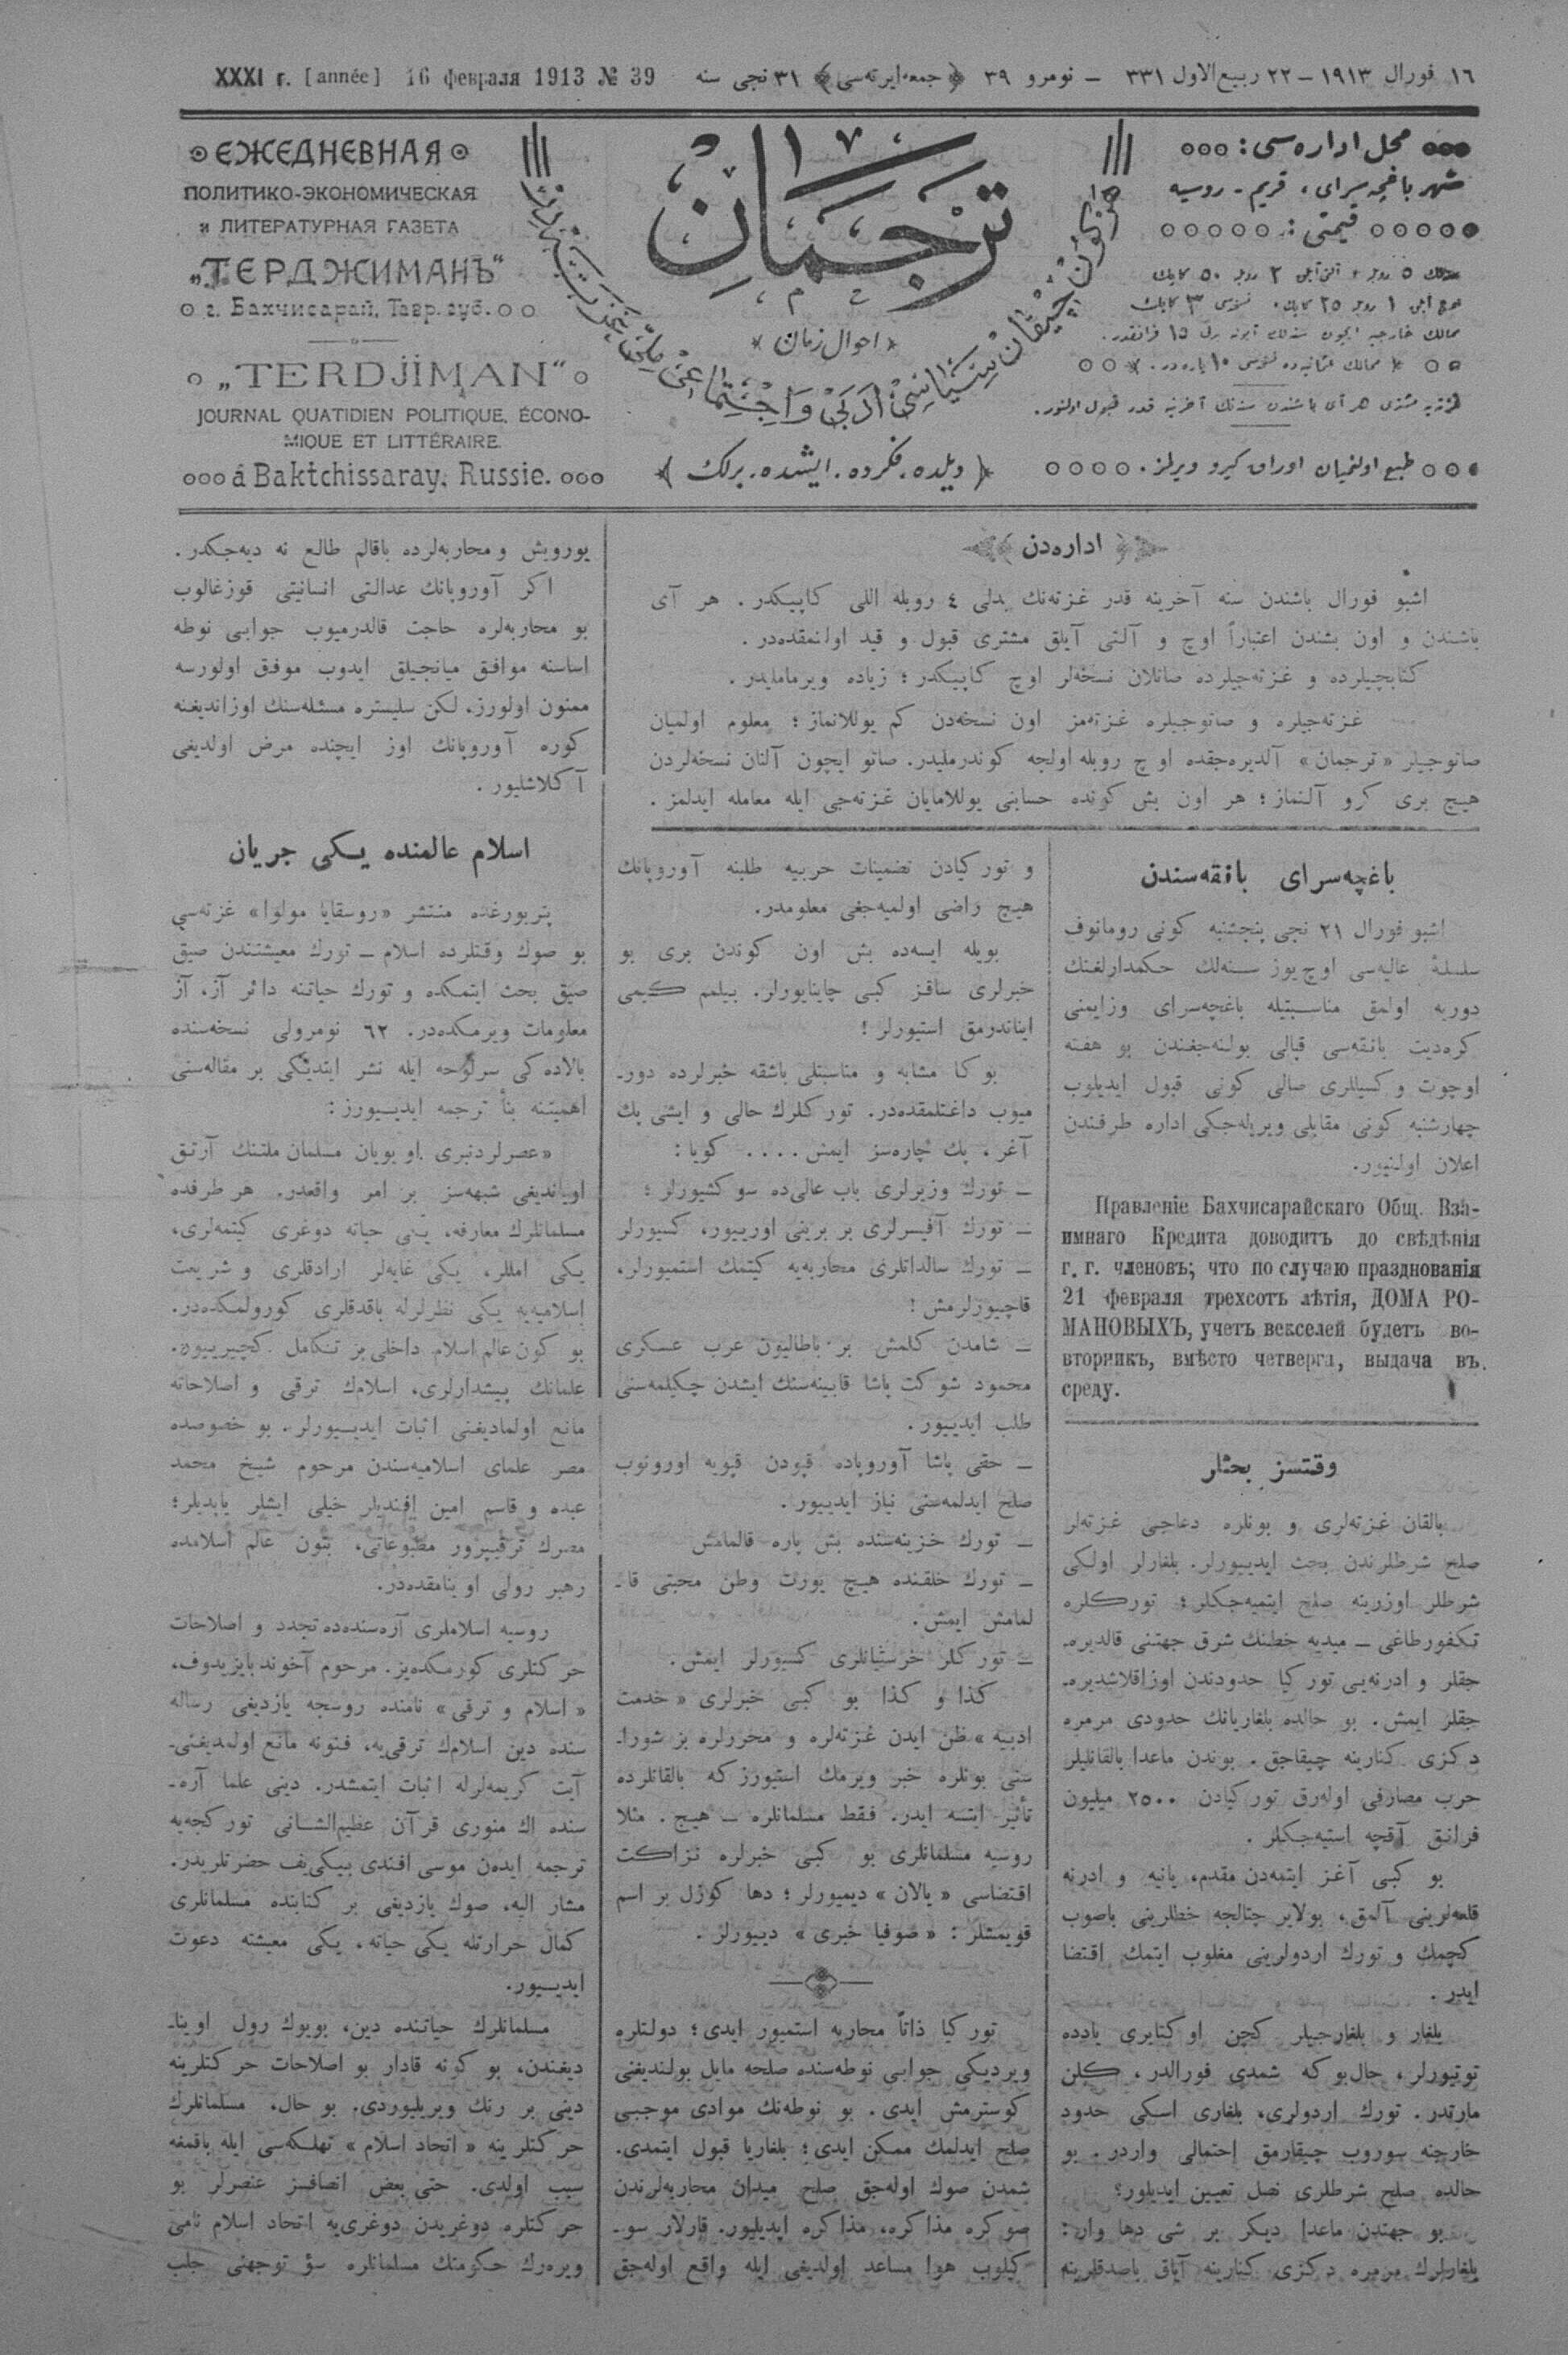 XXXI г. [année] 16 февраля 1913 № 39 ١٦ فورال ١٩١٣ – ٢٢ ربيع‌الاول ٣٣١ – نومرو ٣٩ ﴿جمعه‌ايرته‌سى﴾ ٣١ نجى سنه
ЕЖЕДНЕВНАЯ
ПОЛИТИКО-ЭКОНОМИЧЕСКАЯ
и ЛИТЕРАТУРНАЯ ГАЗЕТА
„ТЕРДЖИМАНЪ“
г. Бахчисарай, Тавр. губ.
„TERDJIMAN“
JOURNAL QUATIDIEN POLITIQUE, ÉCONO-
MIQUE ET LITTÉRAIRE.
á Baktchissaray, Russie.
ترجمان
احوال زمان
﴿ ديلده. فكرده. ايشده. برلك ﴾
محل اداره‌سى:
شهر باغچه‌سراى، قريم - روسيه
قيمتى:
سنه‌لك ٥ روبله، آلتى آيلق ٢ روبله ٥٠ كاپك
اوچ آيلق ١ روبله ٢٥ كاپك. نسخه‌سى ٣ كاپك
ممالك خارجيه ايچون سنه‌لك آبونه بدلى ١٥ فرانقدر.
ممالك عثمانيه‌ده نسخه‌سى ١٠ پاره‌در.
غزته‌يه مشترى هر آى باشندن سنه‌نك آخرينه قدر قبول اولنور.
طبع اولنميان اوراق كيرو ويرلمز.
اداره‌دن
اشبو فورال باشندن سنه آخرينه قدر غزته‌نك بدلى ٤ روبله اللى كاپيكدر. هر آى
باشندن و اون بشندن اعتباراً اوچ و آلتى آيلق مشترى قبول و قيد اولنمقده‌در.
كتابچيلرده و غزته‌جيلرده صاتلان نسخه‌لر اوچ كاپيكدر؛ زياده ويرماملیدر.
غزته‌جيلره و صاتوجيلره غزته‌مز اون نسخه‌دن كم يوللانماز؛ معلوم اولميان
صاتوجيلر «ترجمان» آلديره‌جقده اوچ روبله اولجه كوندرمليدر. صاتو ايچون آلنان نسخه‌لردن
هيچ برى كرو آلنماز؛ هر اون بش كونده حسابنى يوللامايان غزته‌جى ايله معامله ايدلمز.
باغچه‌سراى بانقه‌سندن
اشبو فورال ٢١ نجى پنجشنبه كونى رومانوف
سلسلهٔ عاليه‌سى اوچ يوز سنه‌لك حكمدارلغنك
دوريه اولمق مناسبتيله باغچه‌سراى وزايمنى
كره‌ديت بانقه‌سى قپالى بولنه‌جغندن بو هفته
اوچوت وكسيللرى صالى كونى قبول ايديلوب
چهارشنبه كونى مقابلى ويريله‌جكى اداره طرفندن
اعلان اولنيور.
Правленіе Бахчисарайскаго Общ. Вза-
имнаго Кредита доводитъ до свѣдѣнія
г. г. членовъ; что по случаю празднованія
21 февраля трехсотъ лѣтія, ДОМА РО-
МАНОВЫХЪ, учетъ векселей будетъ во-
вторникъ, вмѣсто четверга, выдача въ
среду.
وقتسز بحثلر
بالقان غزته‌لرى و بونلره دعاجى غزته‌لر
صلح شرطلرندن بحث ايدييورلر. بلغارلر اولكى
شرطلر اوزرينه صلح ايتميه‌جكلر؛ توركلره
تكفورطاغى ــ ميديه خطنك شرق جهتنى قالديره‌ـ
جقلر و ادرنه‌يى توركيا حدودندن اوزاقلاشديره‌ـ
جقلر ايمش. بو حالده بلغاريانك حدودى مرمره
دكزى كنارينه چيقاجق. بوندن ماعدا بالقانليلر
حرب مصارفى اوله‌رق توركيادن ٢٥٠٠ ميليون
فرانق آقچه استيه‌جكلر.
بو كبى آغز ايتمه‌دن مقدم، يانيه و ادرنه
قلعه‌لرينى آلمق، بولاير چتالجه خطلرينى باصوب
كچمك و تورك اردولرينى مغلوب ايتمك اقتضا
ايدر.
بلغار و بلغارجيلر كچن اوكتابرى يادده
توتيورلر، حال‌بوكه شمدى فورالدر، كلن
مارتدر. تورك اردولرى، بلغارى اسكى حدود
خارجنه سوروب چيقارمق احتمالى واردر. بو
حالده صلح شرطلرى نصل تعيين ايديلور؟
بو جهتدن ماعدا ديكر بر شى دها وار:
بلغارلرك مرمره دكزى كنارينه آياق باصدقلرينه
و توركيادن تضمينات حربيه طلبنه آوروپانك
هيچ راضى اولميه‌جغى معلومدر.
بويله ايسه‌ده بش اون كوندن برى بو
خبرلرى ساقز كبى چاينايورلر. بيلمم كيمى
ايناندرمق استيورلر!
بوكا مشابه و مناسبتلى باشقه خبرلرده دورـ
ميوب داغتلمقده‌در. توركلرك حالى و ايشى پك
آغر، پك چاره‌سز ايمش.... كويا:
ــ تورك وزيرلرى باب عالى‌ده سوكشيورلر؛
ــ تورك آفيسرلرى بر برينى اورييور، كسيورلر
ــ تورك سالداتلرى محاربه‌يه كيتمك استميورلر،
قاچيورلرمش!
ــ شامدن كلمش بر باطاليون عرب عسكرى
محمود شوكت پاشا قابينه‌سنك ايشدن چكيلمه‌سنى
طلب ايدييور.
ــ حقى پاشا آوروپاده قپودن قپويه اورونوب
صلح ايدلمه‌سنى نياز ايدييور.
ــ تورك خزينه‌سنده بش پاره قالمامش
ــ تورك خلقنده هيچ يورت وطن محبتى قاـ
لمامش ايمش.
ــ توركلر خرستيانلرى كسيورلر ايمش.
كذا و كذا بو كبى خبرلرى «خدمت
ادبيه» ظن ايدن غزته‌لره و محررلره بز شوراـ
سنى بونلره خبر ويرمك استيورزكه بالقانلرده
تأثير ايتسه ايدر. فقط مسلمانلره ــ هيچ. مثلا
روسيه مسلمانلرى بو كبى خبرلره نزاكت
اقتضاسى «يالان» ديميورلر؛ دها كوزل بر اسم
قويمشلر: «صوفيا خبرى» دييورلر.
توركيا ذاتاً محاربه استميور ايدى؛ دولتلره
ويرديكى جوابى نوطه‌سنده صلحه مايل بولنديغنى
كوسترمش ايدى. بو نوطه‌نك موادى موجبى
صلح ايدلمك ممكن ايدى؛ بلغاريا قبول ايتمدى.
شمدن صوك اوله‌جق صلح ميدان محاربه‌لرندن
صوكره مذاكره، مذاكره ايديليور. قارلار سوـ
كيلوب هوا مساعد اولديغى ايله واقع اوله‌جق
يورويش و محاربه‌لرده باقالم طالع نه ديه‌جكدر.
اكر آوروپانك عدالتى انسانيتى قوزغالوب
بو محاربه‌لره حاجت قالدرميوب جوابى نوطه
اساسنه موافق ميانجيلق ايدوب موفق اولورسه
ممنون اولورز، لكن سليستره مسئله‌سنك اوزانديغنه
كوره آوروپانك اوز ايچنده مرض اولديغى
آكلاشليور.
اسلام عالمنده يكى جريان
پتربورغده منتشر «روسقايا مولوا» غزته‌سى
بو صوك وقتلرده اسلام ــ تورك معيشتندن صيق
صيق بحث ايتمكده و تورك حياتنه دائر آز، آز
معلومات ويرمكده‌در. ٦٢ نومرولى نسخه‌سنده
بالاده‌كى سرلوحه ايله نشر ايتديكى بر مقاله‌سنى
اهميتنه بناً ترجمه ايدييورز:
«عصرلردنبرى اويويان مسلمان ملتنك آرتق
اوياندیغى شبهه‌سز بر امر واقعدر. هر طرفده
مسلمانلرك معارفه، يكى حياته دوغرى كيتمه‌لرى،
يكى امللر، يكى غايه‌لر ارادقلرى و شريعت
اسلاميه‌يه يكى نظرلرله باقدقلرى كورولمكده‌در.
بو كون عالم اسلام داخلى بر تكامل كچيرييور.
علمانك پيشدارلرى، اسلامك ترقى و اصلاحاته
مانع اولماديغنى اثبات ايدييورلر. بو خصوصده
مصر علماى اسلاميه‌سندن مرحوم شيخ محمد
عبده و قاسم امين افنديلر خيلى ايشلر ياپديلر؛
مصرك ترقيپرور مطبوعاتى، بتون عالم اسلامده
رهبر رولى اوينامقده‌در.
روسيه اسلاملرى آره‌سنده‌ده تجدد و اصلاحات
حركتلرى كورمكده‌يز. مرحوم آخوند بايزيدوف،
«اسلام و ترقى» نامنده روسجه يازديغى رساله
سنده دين اسلامك ترقى‌يه، فنونه مانع اولمديغنى
آيت كريمه‌لرله اثبات ايتمشدر. دينى علما آره‌ـ
سنده اك منورى قرآن عظيم‌الشانى توركجه‌يه
ترجمه ايده‌ن موسى افندى بيكى‌يف حضرتلريدر.
مشار اليه، صوك يازديغى بر كتابنده مسلمانلرى
كمال حرارتله يكى حياته، يكى معيشته دعوت
ايدييور.
مسلمانلرك حياتنده دين، بويوك رول اويناـ
ديغندن، بو كونه قادار بو اصلاحات حركتلرينه
دينى بر رنك ويريليوردى. بو حال، مسلمانلرك
حركتلرينه «اتحاد اسلام» تهلكه‌سى ايله باقمغه
سبب اولدى. حتى بعض انصافسز عنصرلر بو
حركتلره دوغريدن دوغرى‌يه اتحاد اسلام نامى
ويره‌رك حكومتك مسلمانلره سؤ توجهنى جلب